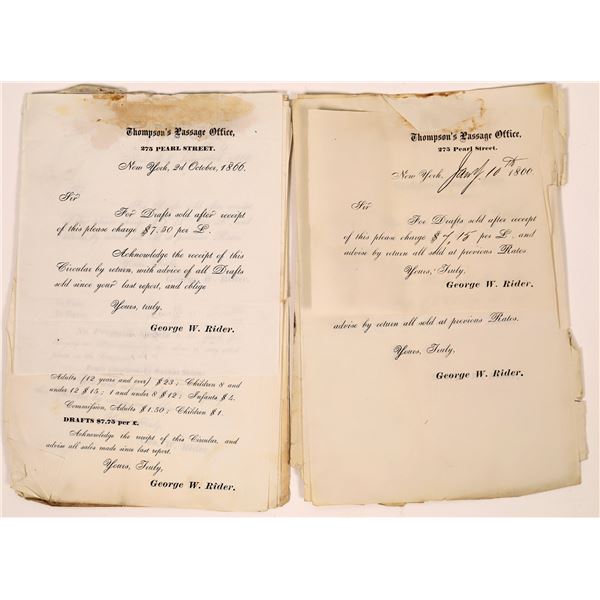 Thompson's Passage Office,
275 PEARL STREET.
New York, 2d October, 1866.
Sir
For Drafts sold after receipt
of this please charge $7.50 per £.
Acknowledge the receipt of this
Circular by return, with advice of all Drafts
sold since your last report, and oblige
Yours, truly.
George W. Rider.
Adults (12 years and over) $23; Children 8 and
under 12 $15; 1 and under 8 $12; Infants $4.
Commission, Adults $1.50; Children $1.
DRAFTS $7.75 per £.
Acknowledge the receipt of this Circular, and
advise all sales made since last report.
Yours, Truly,
George W. Rider.
Thompson's Passage Office,
275 Pearl Street.
New York, Jany. 10th 1860.
Sir
For Drafts sold after receipt
of this please charge $7,15 per £. and
advise by return all sold at previous Rates
Yours, Truly.
George W. Rider.
advise by return all sold at previous Rates.
Yours, Truly,
George W. Rider.